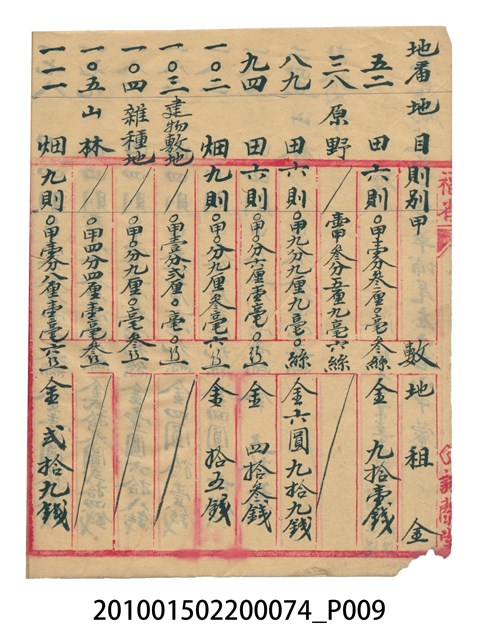 地番 地目 則別 甲數 地租金
五二 田 六則 〇甲壹分叁厘〇毫叁絲 金九拾壹錢
三八 原野 壹甲叁分五厘九毫六絲
八九 田 六則 〇甲九分九厘九毫〇絲 金六圓九拾九錢
九四 田 六則 〇甲〇分六厘壹毫〇絲 金四拾叁錢
一〇二 畑 九則 〇甲〇分九厘叁毫六絲 金拾五錢
一〇三 建物敷地 〇甲壹分貳厘〇毫〇絲
一〇四 雜種地 〇甲〇分九厘〇毫叁絲
一〇五 山林 〇甲四分四厘壹毫叁絲
一一一 畑 九則 〇甲壹分八厘壹毫六絲 金貳拾九錢
201001502200074_P009